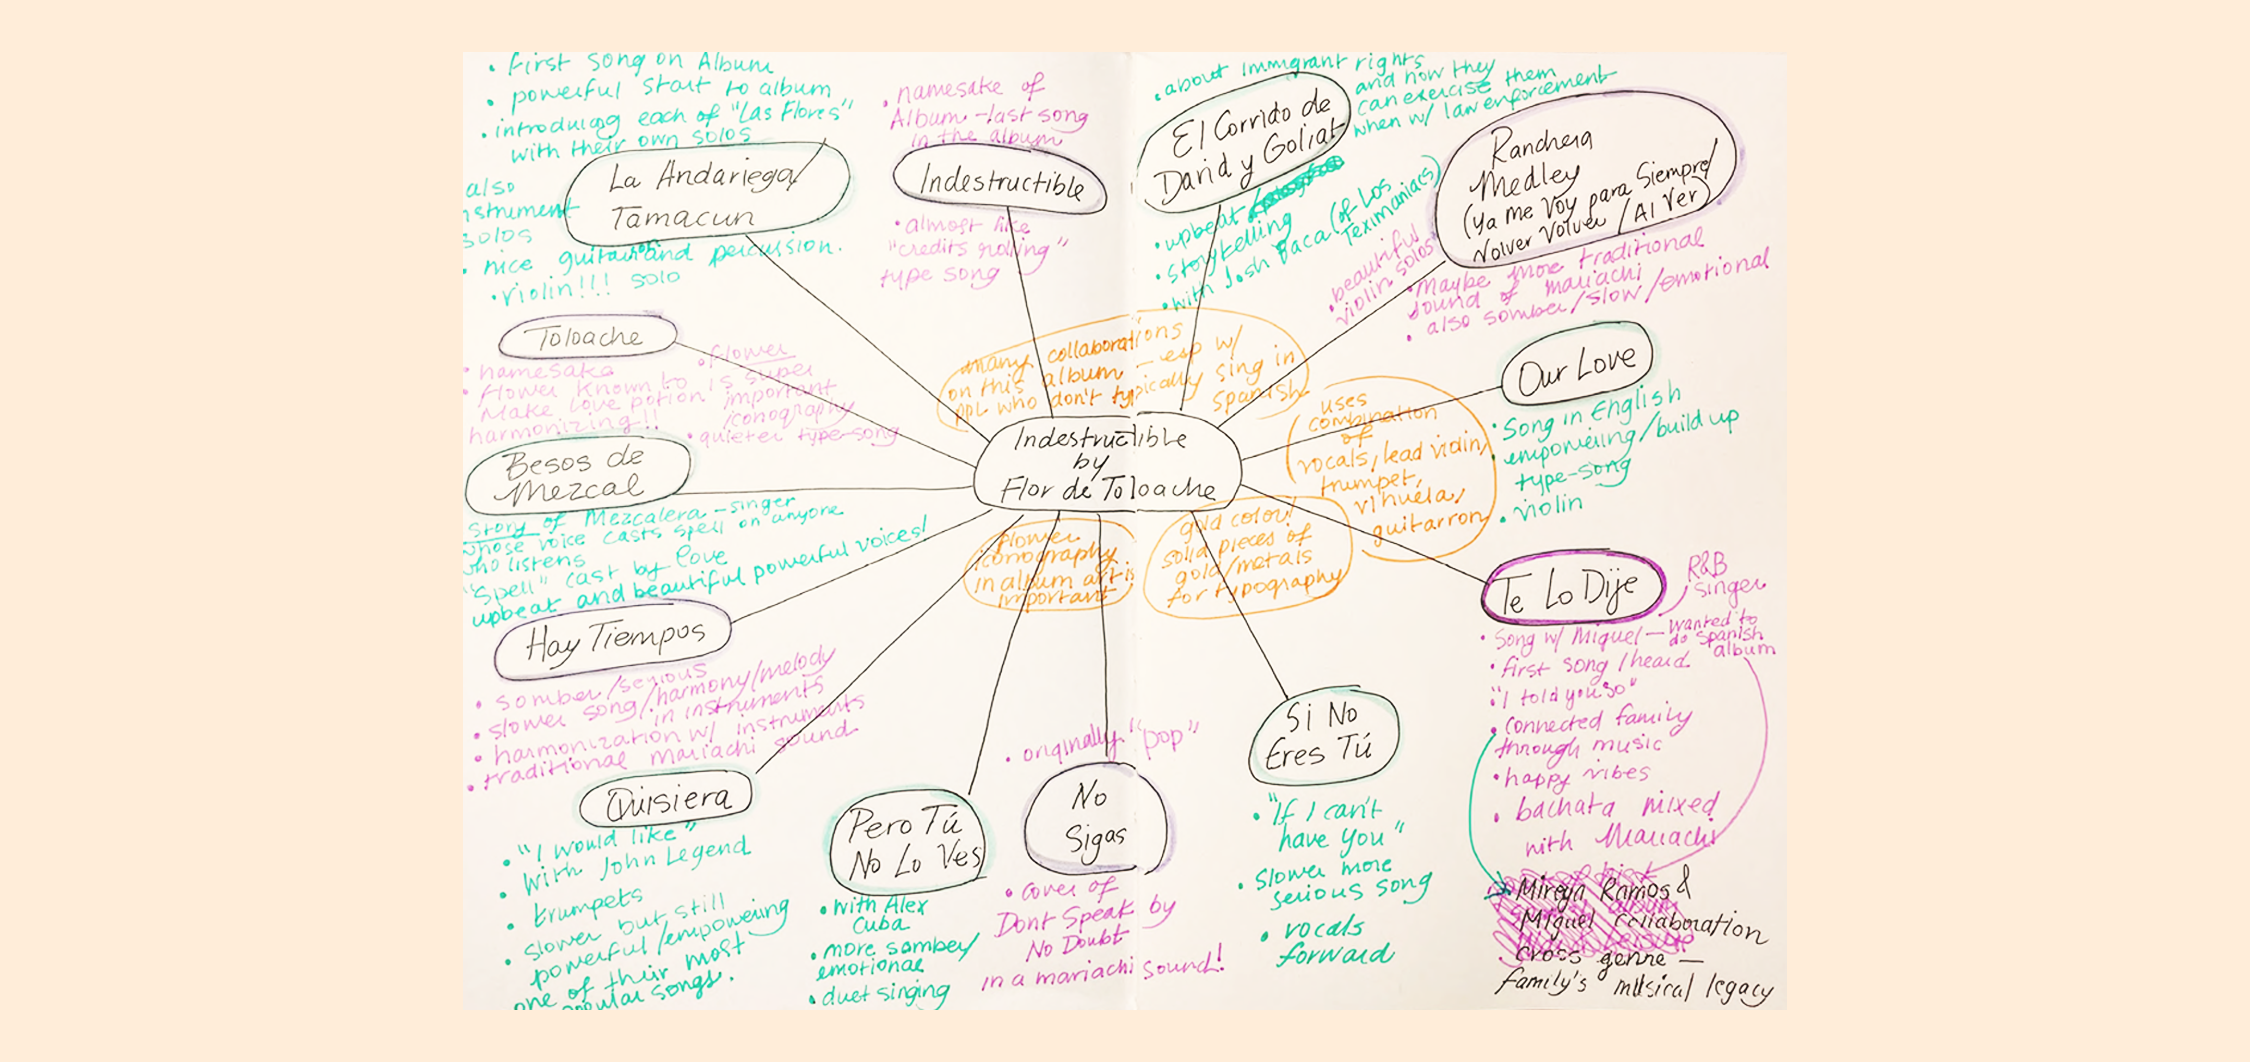 • First Song on Album
• powerful start to album
• introducing each of "Las Flores"
with their own solos
La Andariega/
Tamacun
also
instrument
solos
• nice guitar and percussion.
• violin!!! solo
• namesake of
Album - last song
in the album
Indestructible
• almost like
"credits rolling"
type song
• about immigrant rights
and how they
can exercise them
when w/ law enforcement
El Corrido de
David y Goliat
• upbeat/
• storytelling
• with Josh Baca (of Los
Teximaniacs)
Ranchera
Medley
(Ya me Voy para Siempre/
Volver Volver / Al Ver)
• beautiful
violin solos
• Maybe more traditional
sound of mariachi
• also somber/slow/emotional
Toloache
• namesake
• flower known to
make love potion
harmonizing!!
• flower
is super
important
iconography
• quieter type-song
many collaborations
on this album - esp w/
ppl who don't typically sing in
Spanish
Our Love
• Song in English
• empowering/build up
type-song
• violin
uses
combination
of
vocals, lead violin,
trumpet,
vihuela,
guitarron
Indestructible
by
Flor de Toloache
Besos de
Mezcal
Story of Mezcalera - singer
whose voice casts spell on anyone
who listens
"Spell" cast by love
upbeat and beautiful powerful voices!
flower
iconography
in album art is
important
gold color/
solid pieces of
gold/metals
for typography
Te Lo Dije
R&B
singer
• Song w/ Miguel - wanted to
do Spanish
album
• first song I heard
"I told you so"
• connected family
through music
• happy vibes
• bachata mixed
with Mariachi
Mireya Ramos &
Miguel collaboration
cross genre -
family's musical legacy
Hay Tiempos
• somber/serious
• slower song/harmony/melody
in instruments
• harmonization w/ instruments
• traditional mariachi sound
Quisiera
• "I would like"
• with John Legend
• trumpets
• slower but still
powerful/empowering
one of their most
popular songs.
Pero Tú
No Lo Ves
• with Alex
Cuba
• more somber/
emotional
• duet singing
• originally "pop"
No
Sigas
• cover of
Dont Speak by
No Doubt
in a mariachi sound!
Si No
Eres Tú
• "If I can't
have you"
• Slower more
serious song
• vocals
forward